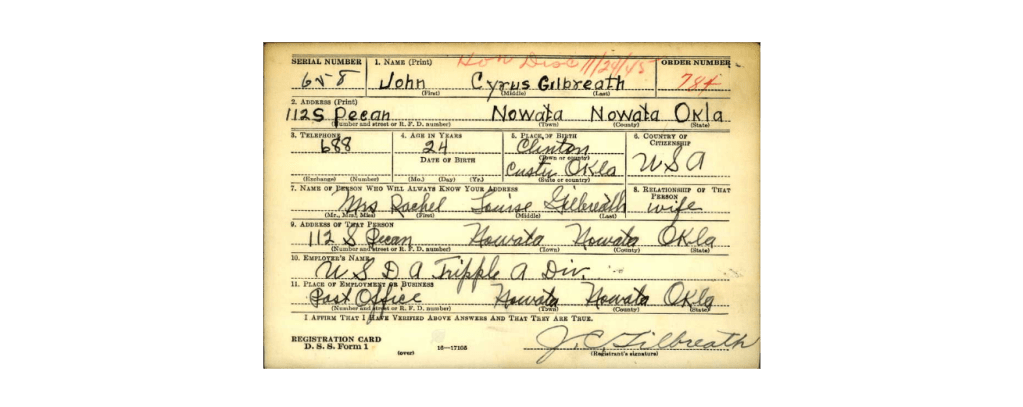 SERIAL NUMBER 1. NAME (Print) Hon Disc 11/29/45 ORDER NUMBER
658 John Cyrus Gilbreath 784
(First) (Middle) (Last)
2. ADDRESS (Print)
112 S Pecan Nowata Nowata Okla
(Number and street or R. F. D. number) (Town) (County) (State)
3. TELEPHONE 4. AGE IN YEARS 5. PLACE OF BIRTH 6. COUNTRY OF CITIZENSHIP
688 24 Clinton
(Town or county)
DATE OF BIRTH Custer Okla USA
(Exchange) (Number) (Mo.) (Day) (Yr.) (State or country)
7. NAME OF PERSON WHO WILL ALWAYS KNOW YOUR ADDRESS 8. RELATIONSHIP OF THAT PERSON
Mrs Rachel Louise Gilbreath wife
(Mr., Mrs., Miss) (First) (Middle) (Last)
9. ADDRESS OF THAT PERSON
112 S Pecan Nowata Nowata Okla
(Number and street or R. F. D. number) (Town) (County) (State)
10. EMPLOYER'S NAME
U S D A Tripple A Div.
11. PLACE OF EMPLOYMENT OR BUSINESS
Post Office Nowata Nowata Okla
(Number and street or R. F. D. number) (Town) (County) (State)
I AFFIRM THAT I HAVE VERIFIED ABOVE ANSWERS AND THAT THEY ARE TRUE.
REGISTRATION CARD J. C. Gilbreath
D. S. S. Form 1 (over) 16—17105 (Registrant's signature)